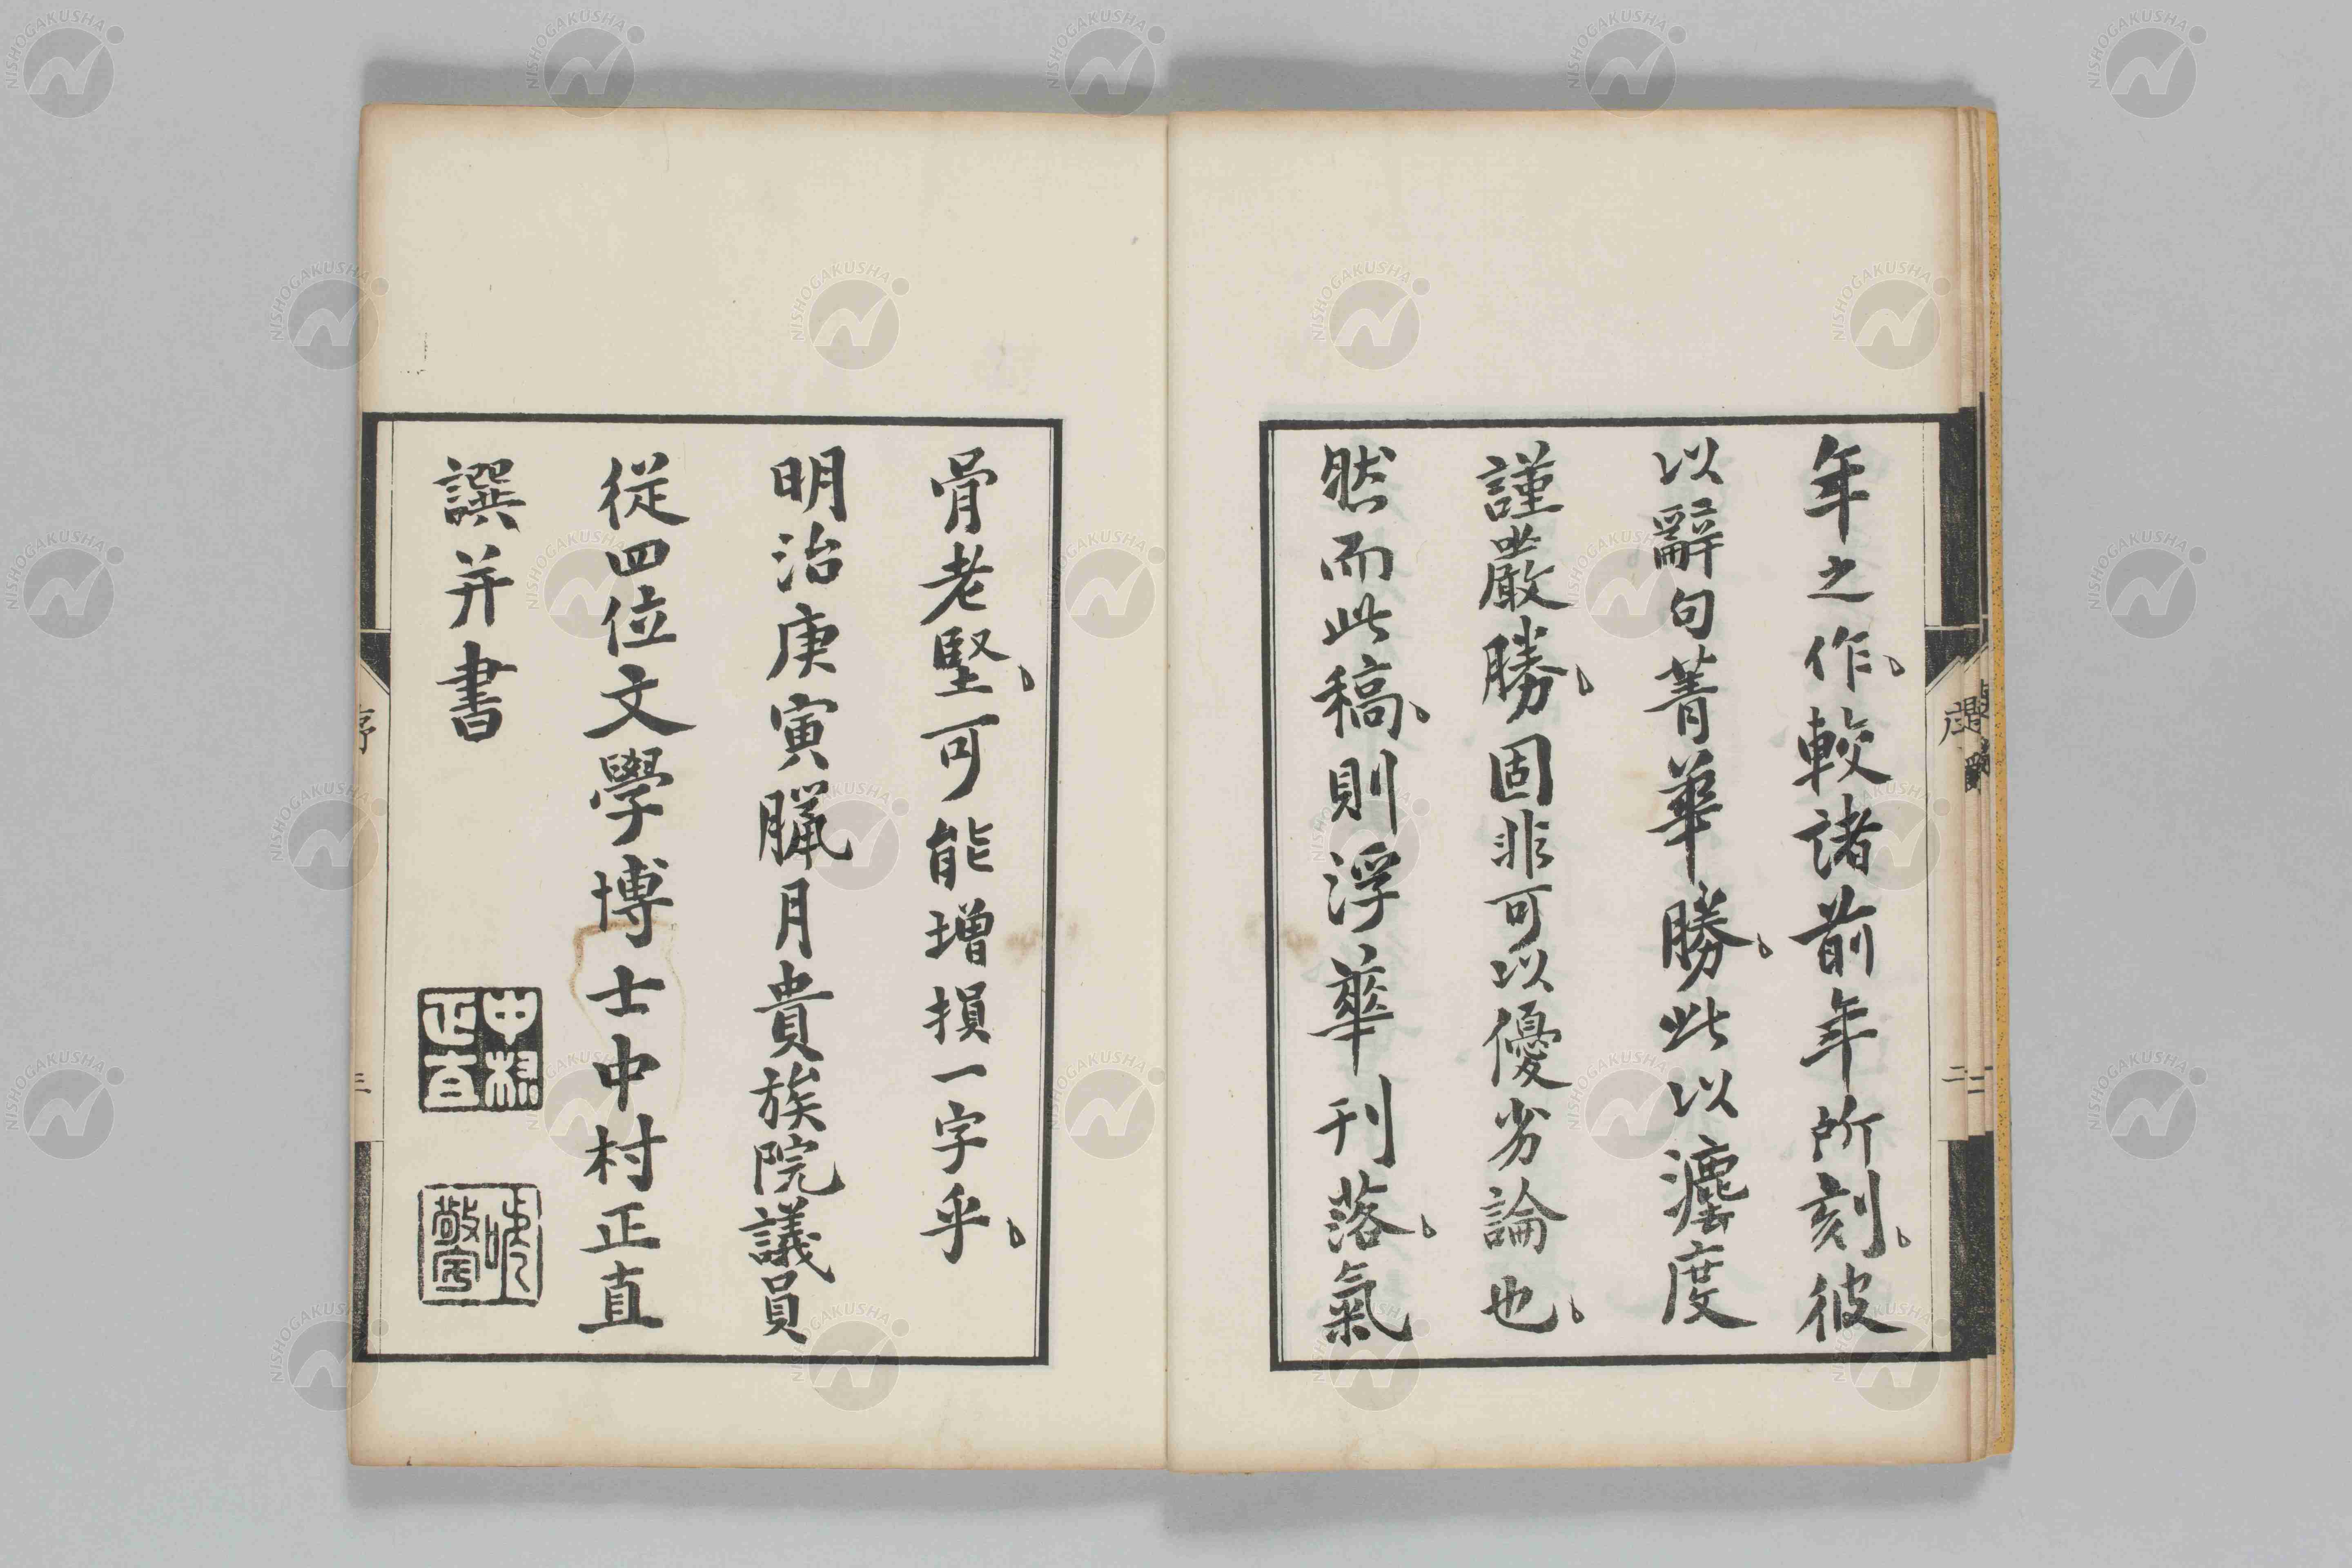 年之作、較諸前年所刻、彼
以辭句菁華勝、此以灋度
謹嚴勝、固非可以優劣論也、
然而此稿、則浮華刊落、氣
骨老堅、可能增損一字乎、
明治庚寅臘月貴族院議員
從四位文學博士中村正直
譔并書
中村正直
序
二
三
NISHOGAKUSHA